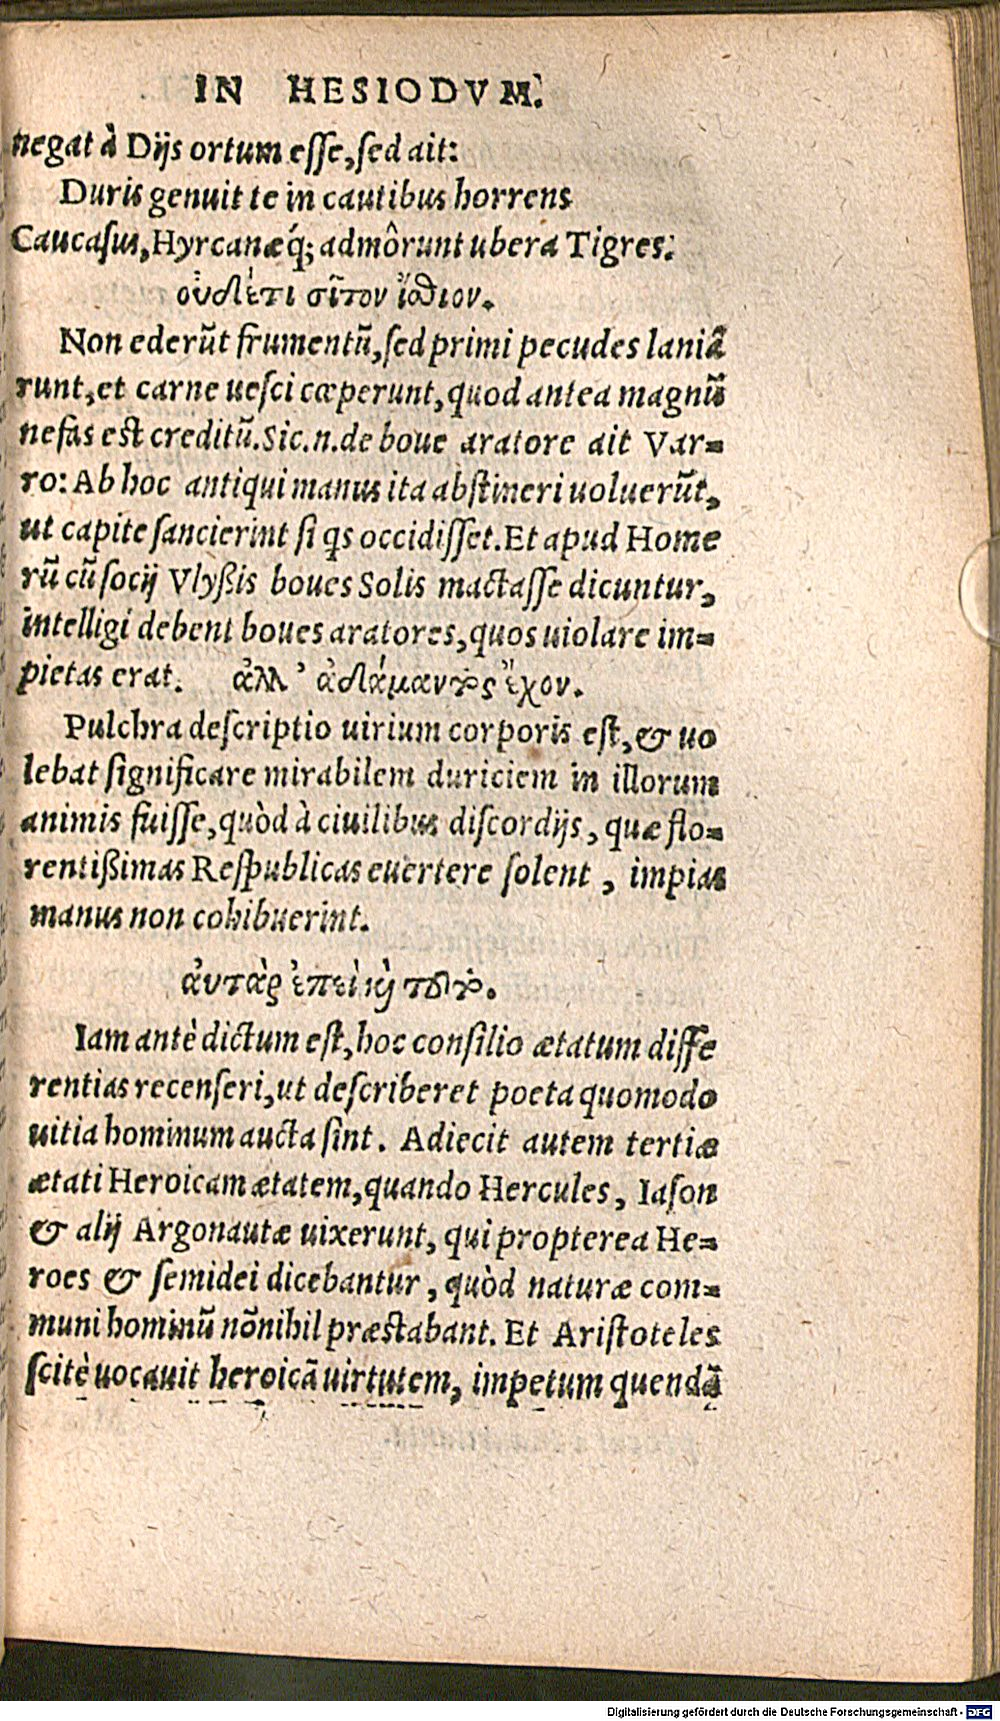 IN HESIODVM.
negat à Dijs ortum esse, sed ait:
Duris genuit te in cautibus horrens
Caucasus, Hyrcanæq́; admôrunt ubera Tigres.
οὐδέτι σῖτον ἤσθιον.
Non ederūt frumentū, sed primi pecudes laniā
runt, et carne uesci cœperunt, quod antea magnū
nefas est creditū. Sic.n.de boue aratore ait Var=
ro: Ab hoc antiqui manus ita abstineri uoluerūt,
ut capite sancierint si qs occidisset. Et apud Home
rū cū socij Vlyßis boues Solis mactasse dicuntur,
intelligi debent boues aratores, quos uiolare im=
pietas erat. ἀλλ’ ἀδάμαντος ἔχον.
Pulchra descriptio uirium corporis est, & uo
lebat significare mirabilem duriciem in illorum
animis fuisse, quòd à ciuilibus discordijs, quæ flo=
rentißimas Respublicas euertere solent, impias
manus non cohibuerint.
ἀυτὰρ ἐπεὶ καὶ τοῦτο.
Iam antè dictum est, hoc consilio ætatum diffe
rentias recenseri, ut describeret poeta quomodo
uitia hominum aucta sint. Adiecit autem tertiæ
ætati Heroicam ætatem, quando Hercules, Iason
& alij Argonautæ uixerunt, qui propterea He=
roes & semidei dicebantur, quòd naturæ com=
muni hominū nōnihil præstabant. Et Aristoteles
scitè uocauit heroicā uirtutem, impetum quendā
Digitalisierung gefördert durch die Deutsche Forschungsgemeinschaft - DFG